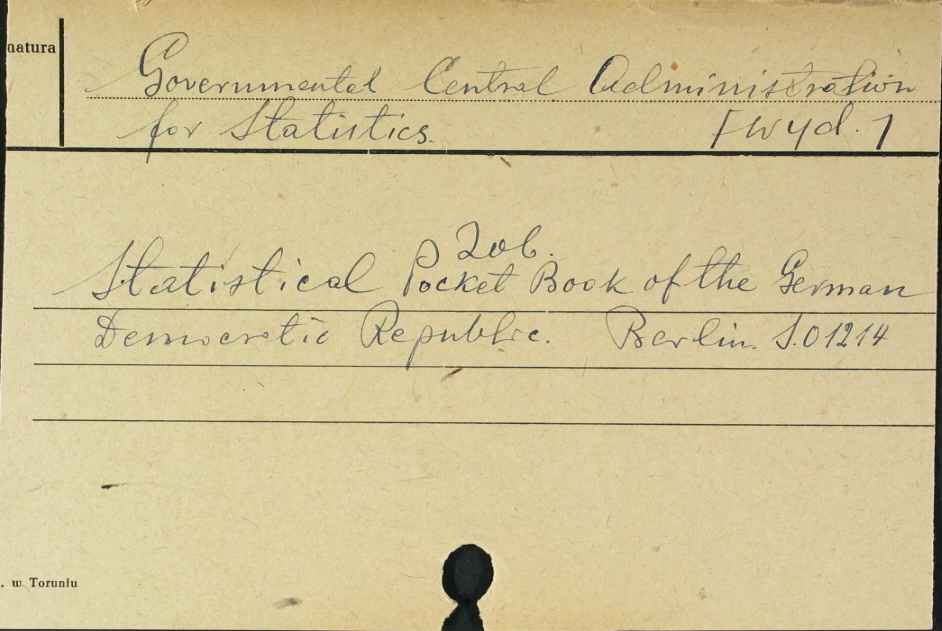 natura
Governmental Central Administration
for Statistics. [Wyd.]
Zob.
Statistical Pocket Book of the German
Democratic Republic. Berlin. S.01214
. w Toruniu